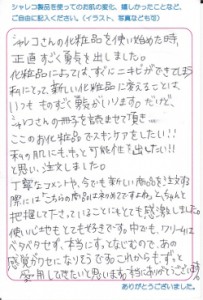 シャレコ製品を使ってのお肌の変化、嬉しかったことなど、
ご自由に記入ください。（イラスト、写真なども可）
シャレコさんの化粧品を使い始めた時、
正直すごく勇気を出しました。
化粧品によっては、すぐにニキビができてしまう
私にとって、新しい化粧品に変えることは、
いつもものすごく勇気がいります。だけど、
シャレコさんの冊子を読ませて頂き…
ここのお化粧品でスキンケアをしたい!!
私の肌にも、きっと可能性を出したい!!
と思い、注文しました。
丁寧なコメントや、今でも新しい商品を注文する
際には「こちらの商品は初めてですよね。」とちゃんと
把握して下さっていることにもとても感激しました。
使い心地もとても好きです。中でも、クリームは
ベタベタせず、本当にすっとなじむので、あの
感覚がクセになりそうです。これからもずっと
愛用していきたいと思います。本当にありがとうございます。
ありがとうございました。